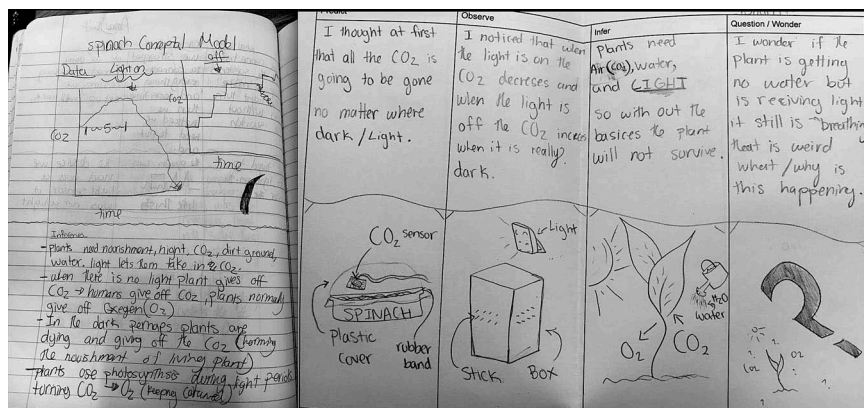 spinach Conceptal Model
Data
Light on
off
CO2
CO2
time
time
Inference
-plants need nourishment, CO2, dirt ground,
water. light lets them take in CO2.
-when there is no light plant gives off
CO2 → humans give off CO2, plants normaly
give off Oxegen (O2)
-In the dark perhaps plants are
dying and giving off the CO2 (
the nourishment of living plant)
-plants use photosynthisis during light periods
turning CO2 → O2 (
Predict
I thought at first
that all the CO2 is
going to be gone
no matter where
dark/Light.
Observe
I noticed that when
the light is on the
CO2 decreses and
when the light is
off the CO2 increses
when it is really
dark.
Infer
Plants need
Air (CO2), water,
and LIGHT
so with out the
basices the plant
will not survive.
Question / Wonder
I wonder if the
plant is getting
no water but
is reciving light
it still is "breathing"
that is weird
what/why is
this happening.
CO2 sensor
SPINACH
plastic
cover
rubber
band
Light
Stick
Box
O2
CO2
H2O
water
?
O2
CO2